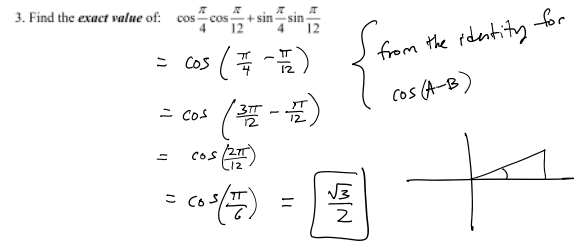 3. Find the exact value of: cos π/4 cos π/12 + sin π/4 sin π/12
= cos (π/4 - π/12)
{ from the identity for
cos (A-B)
= cos (3π/12 - π/12)
= cos (2π/12)
= cos (π/6) = √3/2